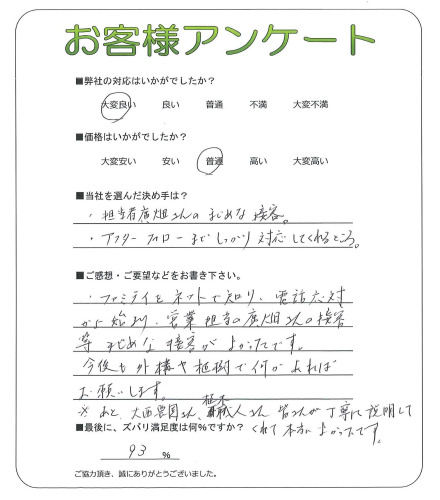 お客様アンケート
■弊社の対応はいかがでしたか?
大変良い 良い 普通 不満 大変不満
■価格はいかがでしたか?
大変安い 安い 普通 高い 大変高い
■当社を選んだ決め手は?
・担当者廣畑さんのまじめな接客。
・アフターフォローまでしっかり対応してくれるところ。
■ご感想・ご要望などをお書き下さい。
・ファミテイをネットで知り、電話応対
から始まり、営業担当の廣畑さんの接客
等まじめな接客がよかったです。
今後も外構や植樹で何かあれば
お願いします。
※あと、大西農園さん、植木職人さん 皆さんが丁寧に説明して
くれて本当によかったです。
■最後に、ズバリ満足度は何%ですか?
93 %
ご協力頂き、誠にありがとうございました。